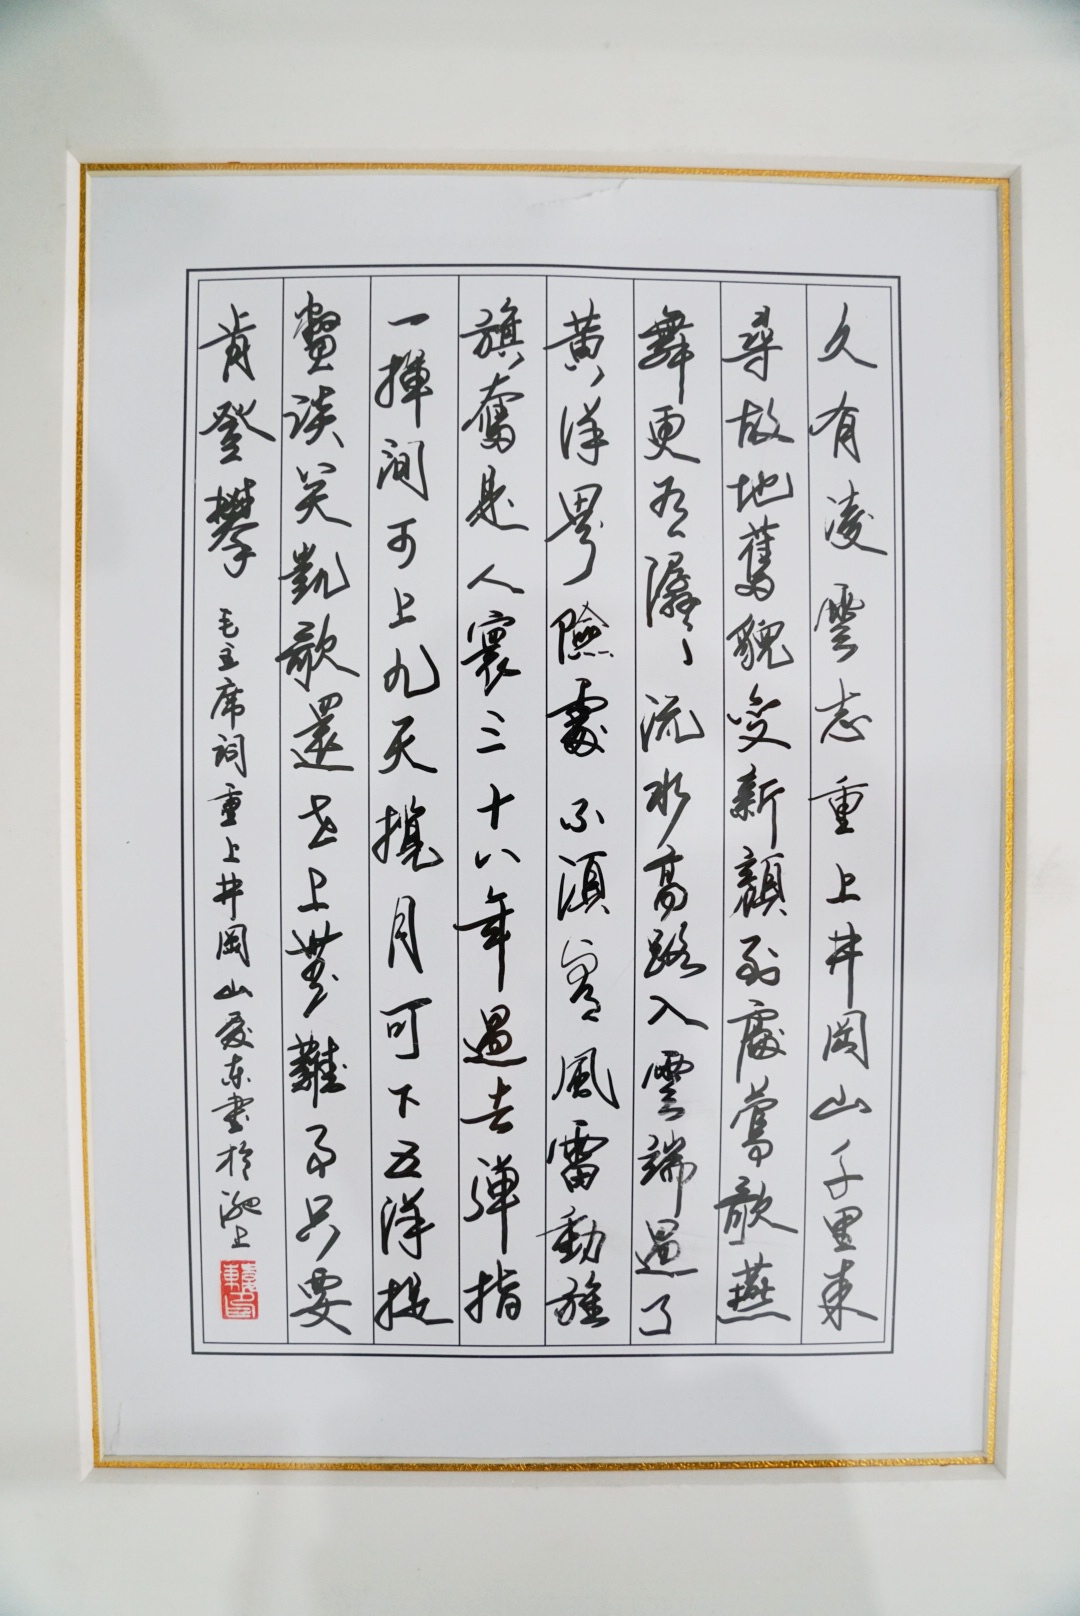 久有凌雲志重上井岡山千里来
尋故地舊貌變新顔到處鶯歌燕
舞更有潺潺流水高路入雲端過了
黄洋界險處不須看風雷動旌
旗奮是人寰三十八年過去彈指
一揮間可上九天攬月可下五洋捉
鱉談笑凱歌還世上無難事只要
肯登攀
毛主席詞重上井岡山慶東書於滬上